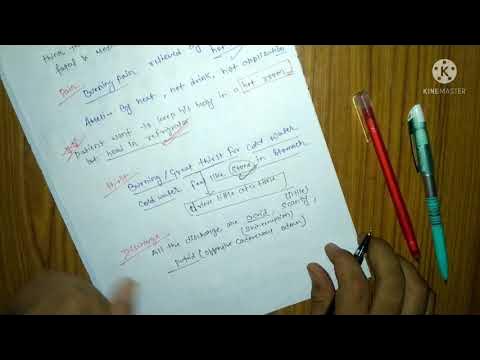 think
fatal
Pain Burning pain relieved by hot
By heat, hot drink, hot application
patient want to keep his body in a hot room
but head in refrigerator
Thirst Burning / Great thirst for cold water
cold water feel like stone in stomach
drink little at a time
Discharge All the discharge are acrid, (little)
(Excoriation) scanty,
putrid (offensive cadaverous odour)
KINEMASTER